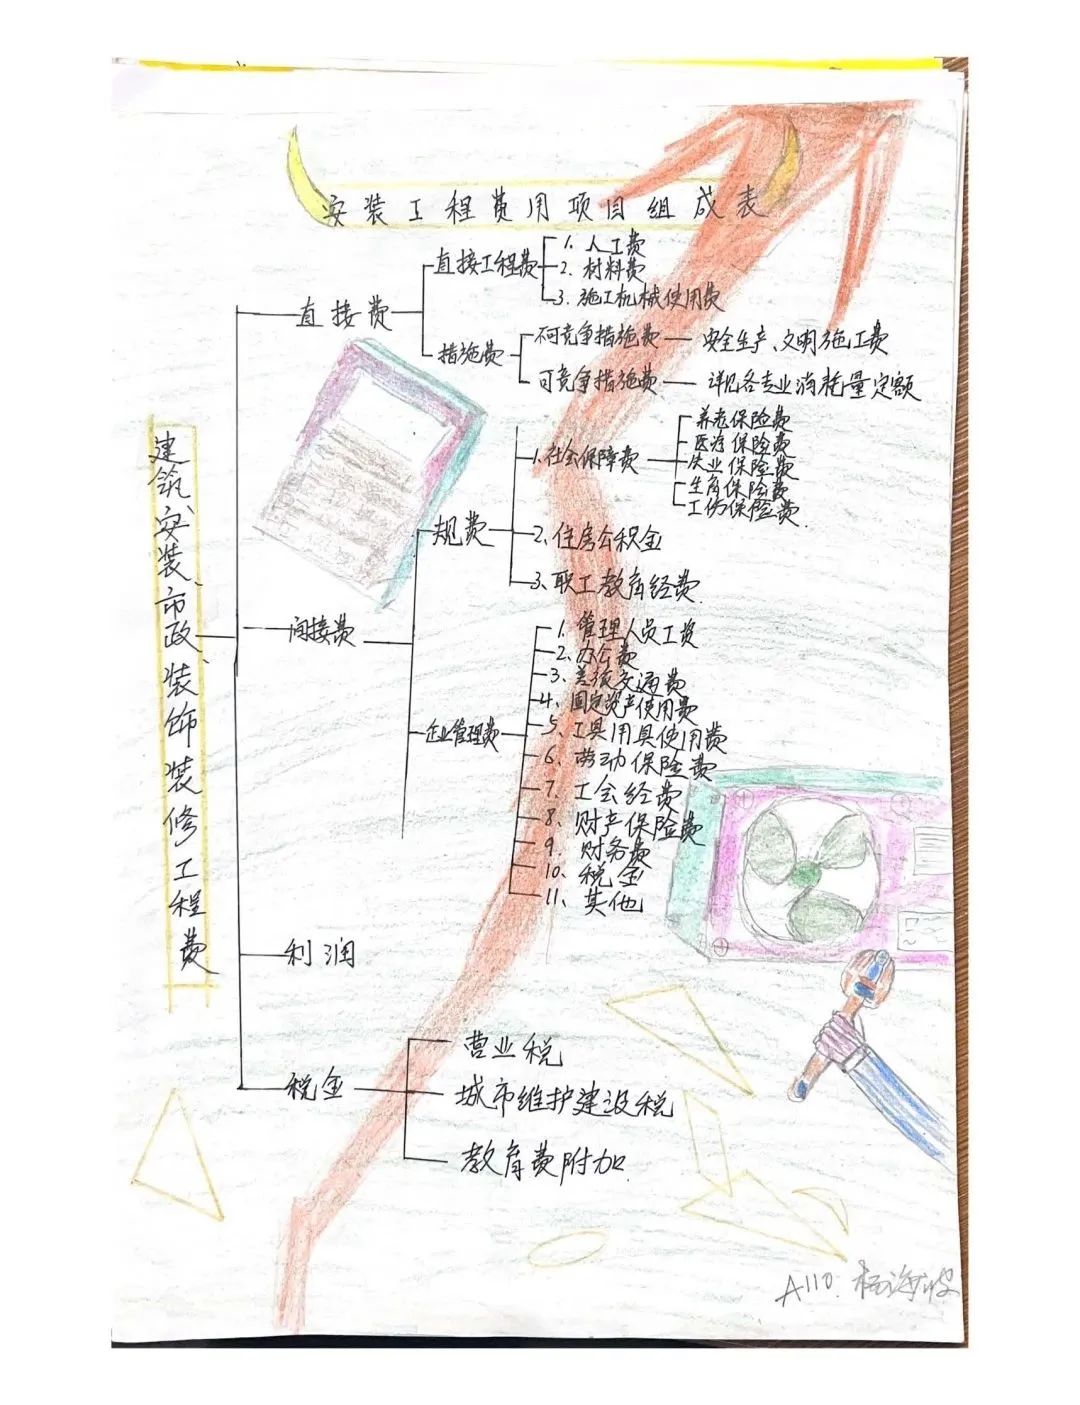 安装工程费用项目组成表
建筑、安装、市政、装饰装修工程费
直接费
直接工程费
1. 人工费
2. 材料费
3. 施工机械使用费
措施费
不可竞争措施费
安全生产、文明施工费
可竞争措施费
详见各专业消耗量定额
间接费
规费
1. 社会保障费
养老保险费
医疗保险费
失业保险费
生育保险费
工伤保险费.
2、住房公积金
3、职工教育经费.
企业管理费
1、管理人员工资
2、办公费
3、差旅交通费
4、固定资产使用费
5、工具用具使用费
6、劳动保险费
7、工会经费
8、财产保险费
9、财务费
10、税金
11、其他
利润
税金
营业税
城市维护建设税
教育费附加.
A110.